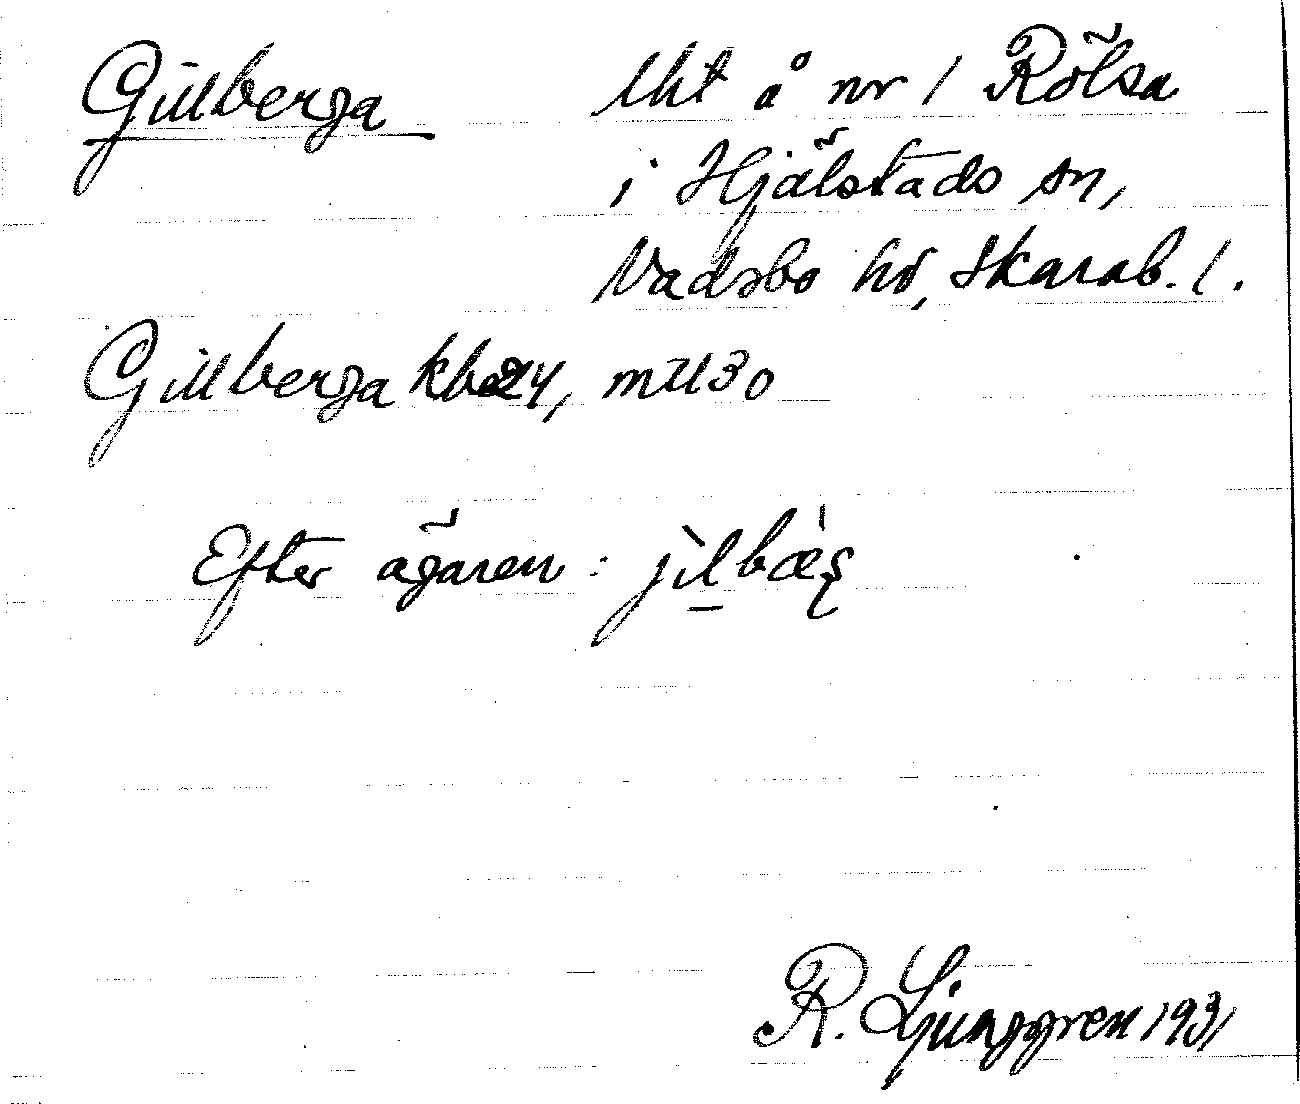 Gillberga lht å nr 1 Rölsa
i Hjälstads sn,
Vadsbo hd, Skarab. l.
Gillberga kbo24, mtl30
Efter ägaren: jìlbæ̀ʂ
R. Ljunggren 1931